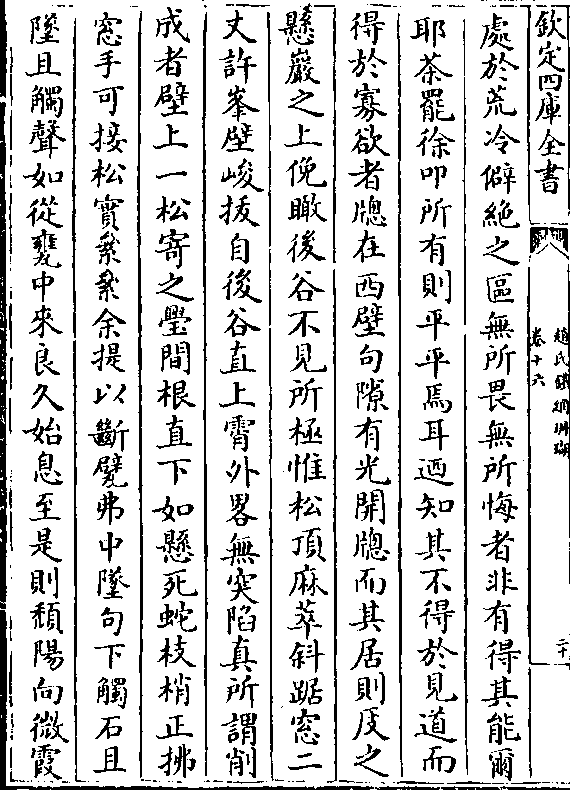 欽定四庫全書
趙氏鐵網珊瑚
卷十六
處於荒冷僻絶之區無所畏無所悔者非有得其能爾
耶茶罷徐叩所有則平平焉耳迺知其不得於見道而
得於寡欲者牕在西壁句隙有光開牕而其居則厦之
懸巖之上俛瞰後谷不見所極惟松頂麻萃斜踞窓二
丈許峯壁峻拔自後谷直上霄外畧無突陷真所謂削
成者壁上一松寄之璺間根直下如懸死蛇枝梢正拂
窓手可接松實纍纍余提以斷甓弗中墜句下觸石且
墜且觸聲如從甕中來良久始息至是則頽陽向微霞